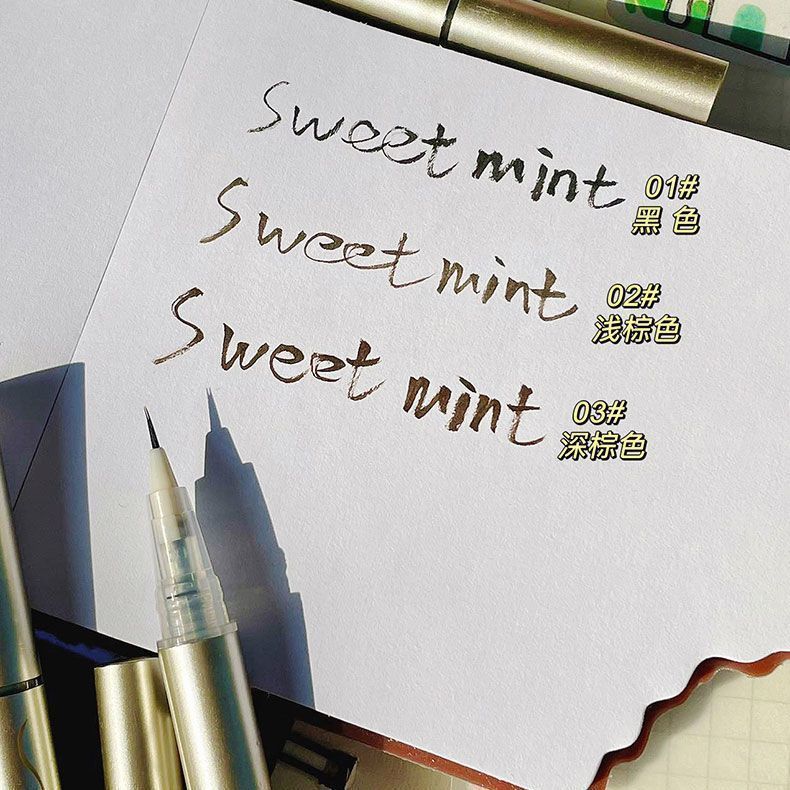 Sweet mint
01#
黑 色
Sweet mint
02#
浅棕色
Sweet mint
03#
深棕色